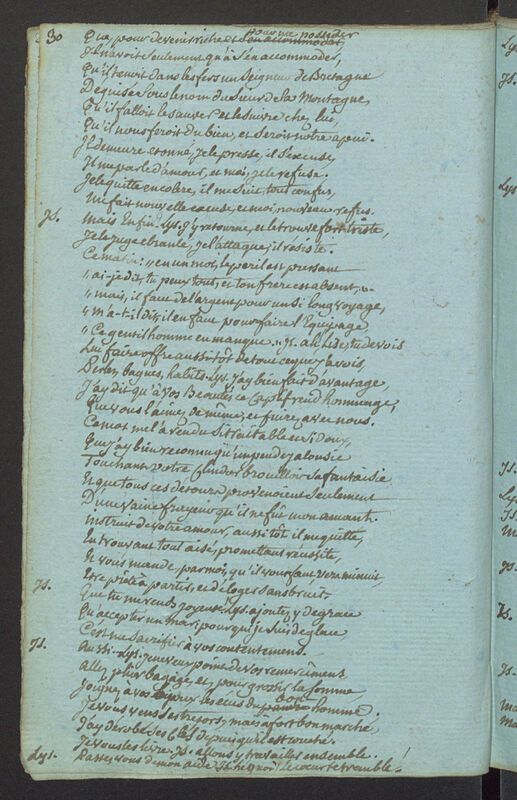 30
Que, pour devenir riche et pour me posséder
Il n'avoit seulement qu'à s'en accommoder,
Qu'il tenoit dans les fers un Seigneur de Bretagne
Déguisé sous le nom du Sieur de la Montagne,
Qu'il falloit le sauver et le suivre chez lui,
Qu'il nous feroit du bien, et seroit notre apui.
Il demeure etonné, je le presse, il s'excuse,
Il me parle d'amour, et moi, je le refuse.
Je le quitte en colere, il me suit, tout confus,
Me fait nouvelle excuse, et moi, nouveau refus.
Is. Mais Enfin. Lys. J'y retourne, et le trouve fort triste,
Je le juge ebranlé, je l'attaque, il résiste.
Ce matin: „ en un mot, le peril est pressant
„ ai-je dit, tu peux tout, et ton frere est absent, „
„ mais, il faut de l'argent pour un si long voyage,
„ m'a-t-il dit, il en faut pour faire l'Equipage,
„ Ce gentilhomme en manque. „ Is. ah Lise, tu devois
Lui faire offre aussitôt de tout ce que j'avois,
Perles, bagues, habits. Lys. j'ay bien fait davantage,
J'ay dit qu'à vos Beautés ce Captif rend hommage,
Que vous l'aimez de même, et fuirez avec nous.
Ce mot me l'a rendu si traitable et si doux,
Que j'ay bien reconnu qu'un peu de jalousie
Touchant votre Clindor brouilloit sa fantaisie
Et que tous ces detours provenoient seulement
D'une vaine frayeur qu'il ne fût mon amant.
Instruit de votre amour, aussitôt il me quitte,
En trouvant tout aisé, promettant réussite,
Et vous mande, par moi, qu'il vous faut vers minuit,
Etre prête à partir, et déloger sans bruit.
Is. Que tu me rends joyeuse! Lys. ajoutez-y de grace
Qu'accepter un mari pour qui je suis de glace
C'est me sacrifier à vos contentemens.
Is. Aussi. Lys. je ne veux point de vos remercîmens,
Allez plier bagage, et, pour grossir la somme,
Joignez à vos bijoux les écus du bon homme;
Je vous vends ses tresors, mais à fort bon marché,
J'ay derobé ses clefs depuis qu'il est couché.
Je vous les livre. Is. allons y travailler ensemble.
Lys. Passez-vous de mon aide. Is. hé quoi! le coeur te tremble!